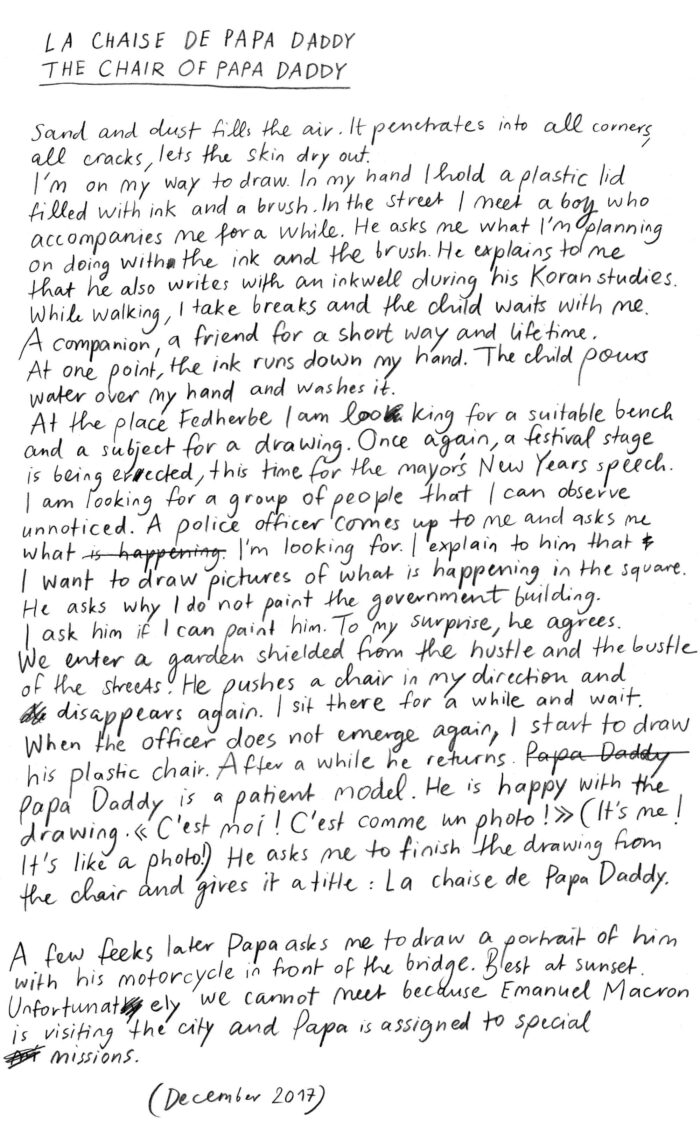 LA CHAISE DE PAPA DADDY
THE CHAIR OF PAPA DADDY
Sand and dust fills the air. It penetrates into all corners,
all cracks, lets the skin dry out.
I'm on my way to draw. In my hand I hold a plastic lid
filled with ink and a brush. In the street I meet a boy who
accompanies me for a while. He asks me what I'm planning
on doing with the ink and the brush. He explains to me
that he also writes with an inkwell during his Koran studies.
While walking, I take breaks and the child waits with me.
A companion, a friend for a short way and lifetime.
At one point, the ink runs down my hand. The child pours
water over my hand and washes it.
At the place Fedherbe I am looking for a suitable bench
and a subject for a drawing. Once again, a festival stage
is being errected, this time for the mayor's New Years speech.
I am looking for a group of people that I can observe
unnoticed. A police officer comes up to me and asks me
what is happening. I'm looking for. I explain to him that
I want to draw pictures of what is happening in the square.
He asks why I do not paint the government building.
I ask him if I can paint him. To my surprise, he agrees.
We enter a garden shielded from the hustle and the bustle
of the streets. He pushes a chair in my direction and
disappears again. I sit there for a while and wait.
When the officer does not emerge again, I start to draw
his plastic chair. After a while he returns. Papa Daddy
Papa Daddy is a patient model. He is happy with the
drawing. « C'est moi! C'est comme un photo! » (It's me!
It's like a photo!) He asks me to finish the drawing from
the chair and gives it a title: La chaise de Papa Daddy.
A few feeks later Papa asks me to draw a portrait of him
with his motorcycle in front of the bridge. Best at sunset.
Unfortunately we cannot meet because Emanuel Macron
is visiting the city and Papa is assigned to special
missions.
(December 2017)